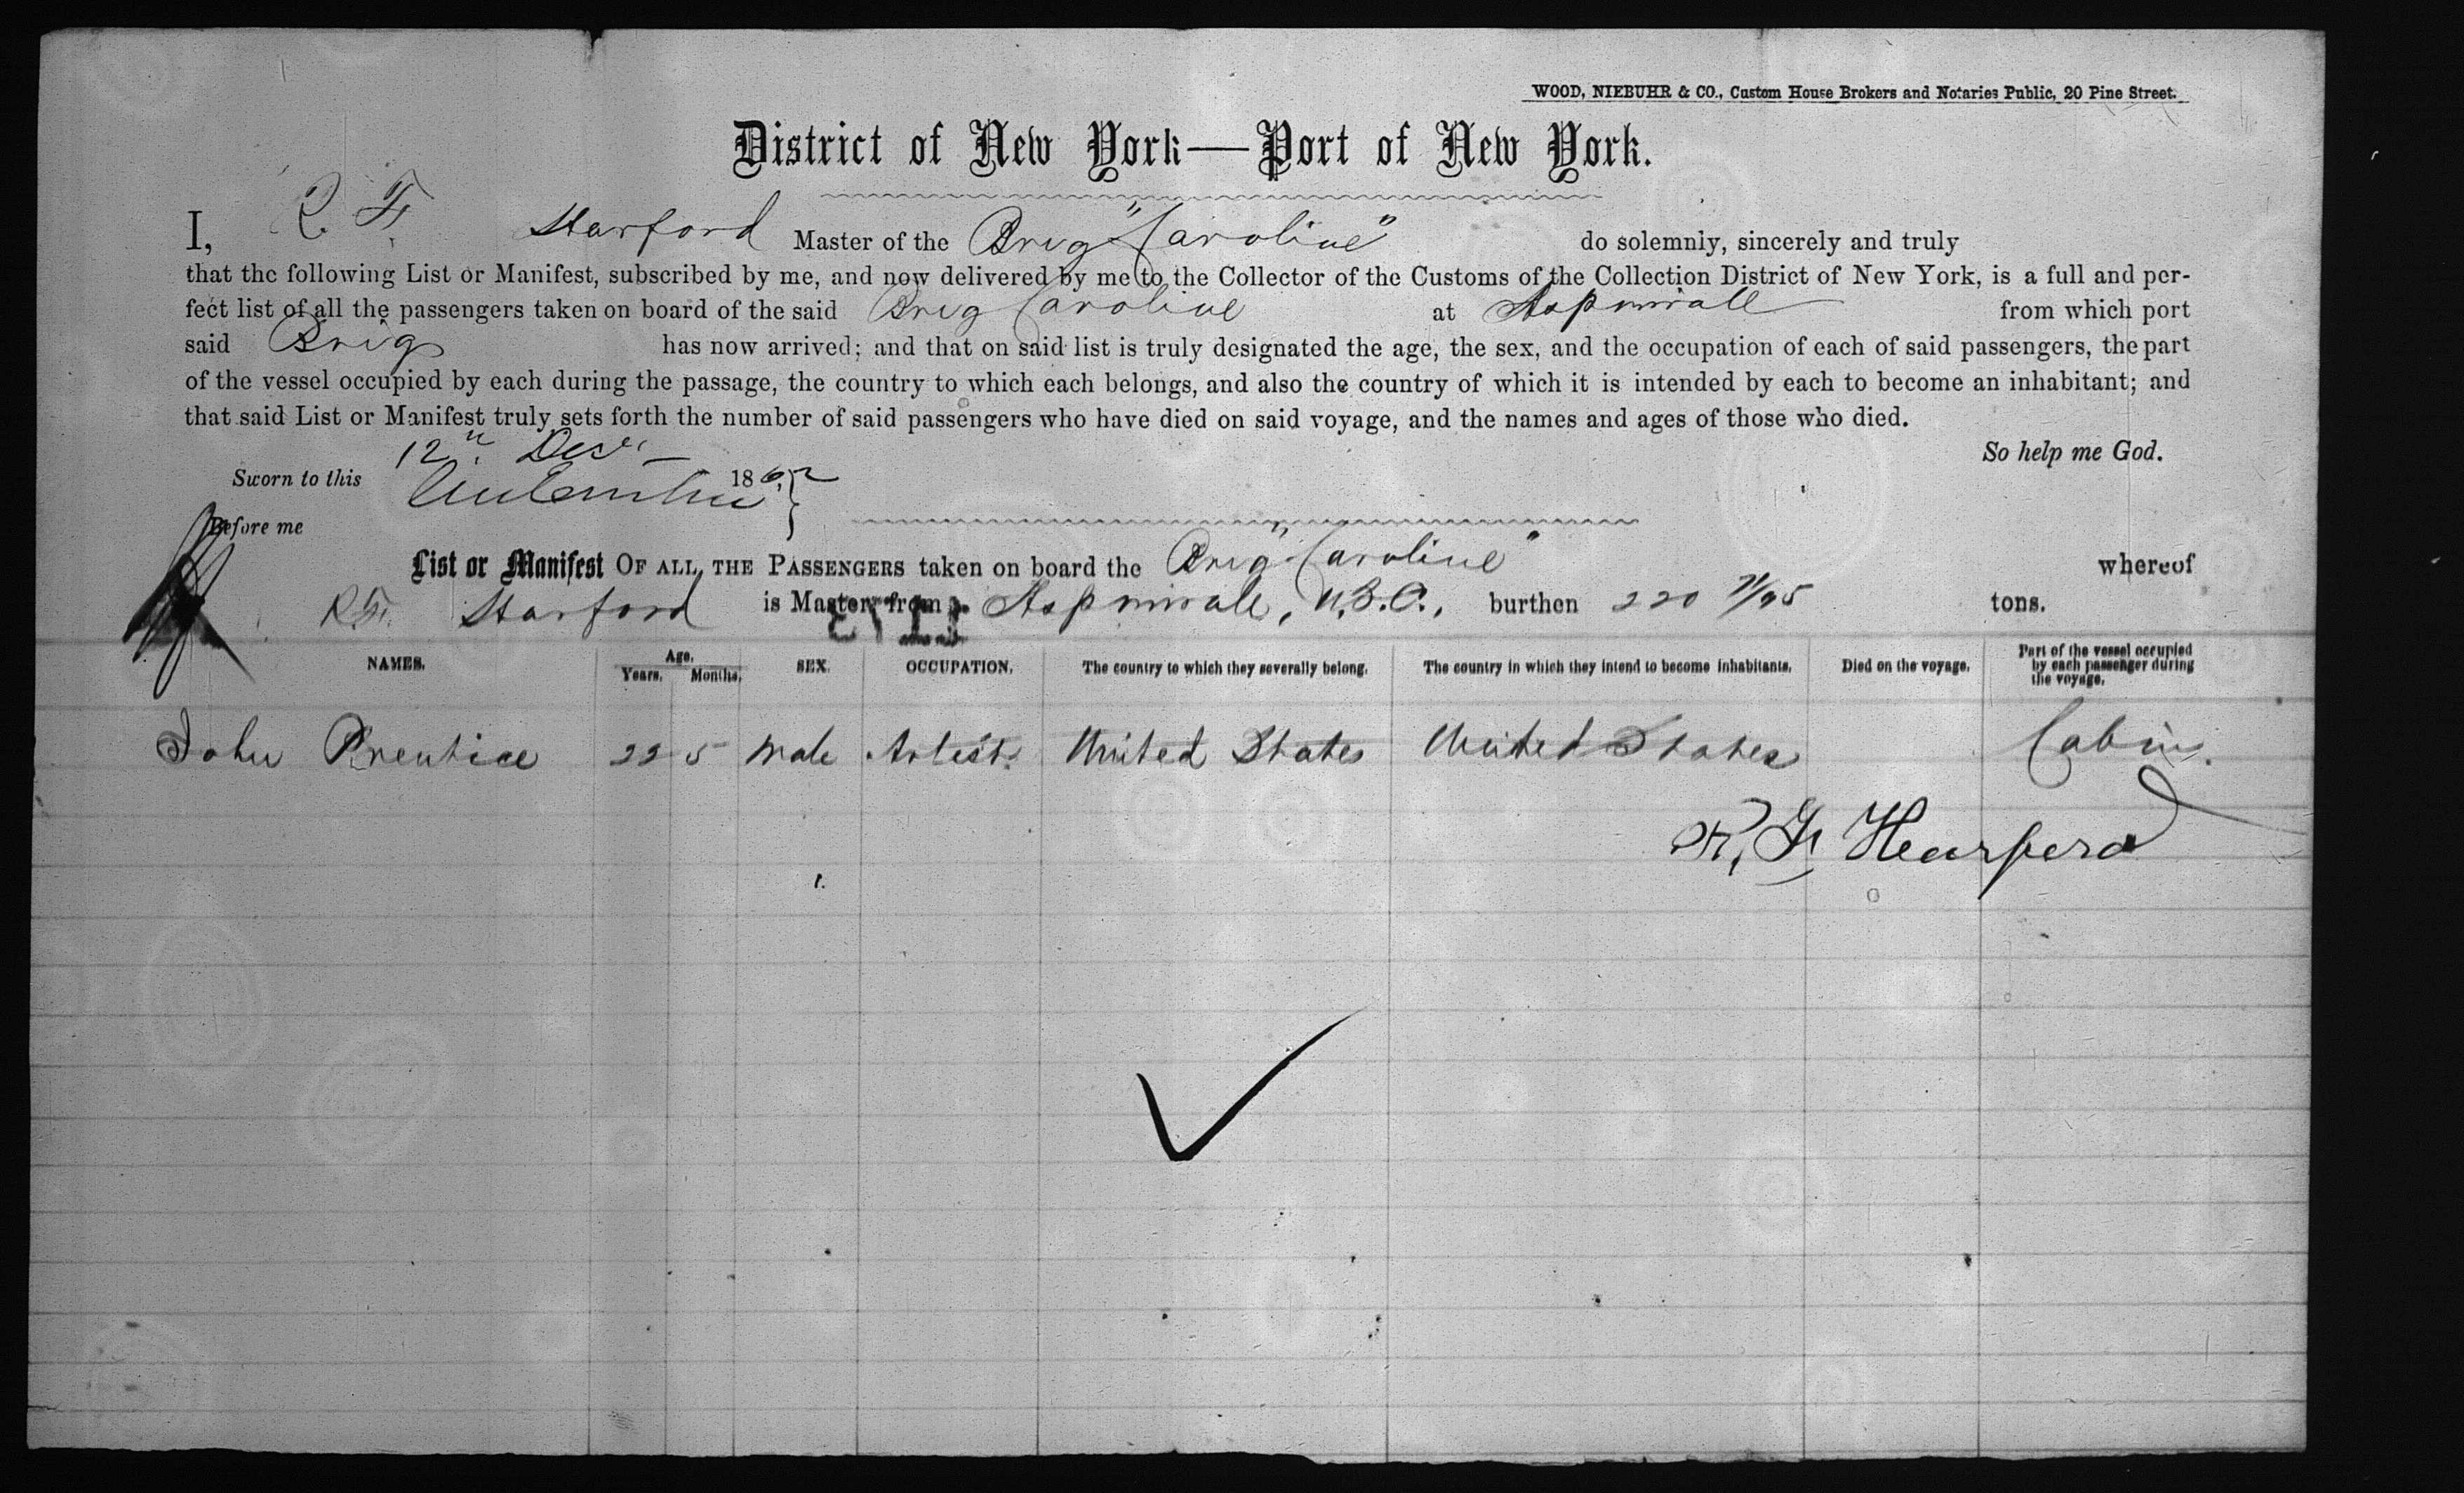 WOOD, NIEBUHR & CO., Custom House Brokers and Notaries Public, 20 Pine Street.
District of New York—Port of New York.
I, R. F. Harford Master of the Brig "Caroline" do solemnly, sincerely and truly
that the following List or Manifest, subscribed by me, and now delivered by me to the Collector of the Customs of the Collection District of New York, is a full and per-
fect list of all the passengers taken on board of the said Brig Caroline at Aspinwall from which port
said Brig has now arrived; and that on said list is truly designated the age, the sex, and the occupation of each of said passengers, the part
of the vessel occupied by each during the passage, the country to which each belongs, and also the country of which it is intended by each to become an inhabitant; and
that said List or Manifest truly sets forth the number of said passengers who have died on said voyage, and the names and ages of those who died.
So help me God.
12" Decr
Sworn to this 1862
Before me
List or Manifest OF ALL THE PASSENGERS taken on board the Brig "Caroline" whereof
R. F. Harford is Master, from Aspinwall, burthen 220 71/95 tons.
NAMES. Age. Years. Months. SEX. OCCUPATION. The country to which they severally belong. The country in which they intend to become inhabitants. Died on the voyage. Part of the vessel occupied by each passenger during the voyage.
John Prentice 22 5 Male Artist. United States United States Cabin.
R. F. Harford
1.